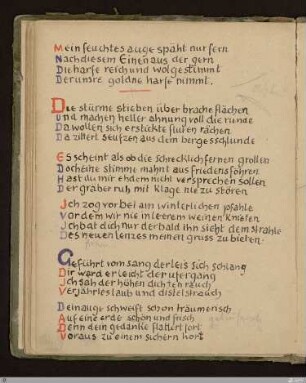 Mein feuchtes auge späht nur fern
Nach diesem Einen aus der gern
Die harfe reich und wolgestimmt
Der unsre goldne harfe nimmt.
Die stürme stieben über brache flächen
Und machen heller ahnung voll die runde
Da wollen sich erstickte fluren rächen
Da zittert seufzen aus dem bergesschlunde
Es scheint als ob die schrecklich fernen grollen
Doch eine stimme mahnt aus friedensföhren
Hast du mir ehdem nicht versprechen sollen
Der gräber ruh mit klage nie zu stören
Ich zog vorbei am winterlichen pfahle
Vor dem wir nie im leeren weinen knieten
Ich bat dich nur der bald ihn sieht dem strahle
Des neuen lenzes meinen gruss zu bieten.
Geführt vom sang der leis sich schlang
Dir ward er leicht der ufergang
Ich sah der höhen dichten rauch
Verjährtes laub und distelstrauch
Dein auge schweift schon träumerisch
Auf eine erde schön und frisch
Denn dein gedanke flattert fort
Voraus zu einem sichern hort